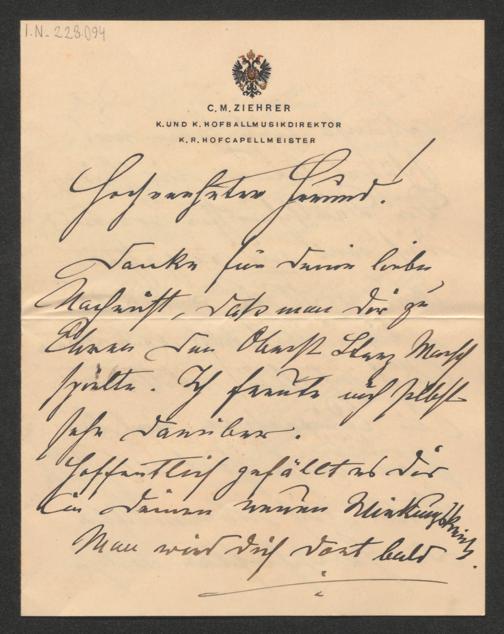 I.N. 228.094
C. M. ZIEHRER
K. UND K. HOFBALLMUSIKDIREKTOR
K. R. HOFCAPELLMEISTER
Hochverehrter Freund!
Danke für deine liebe
Nachricht, daß man dir zu
Ehren den Oberst March
spielte. Ich freute mich selbst
sehr darüber.
Hoffentlich gefällt es dir
in deinem neuen Wirkungskreis.
Man wird dich dort bald